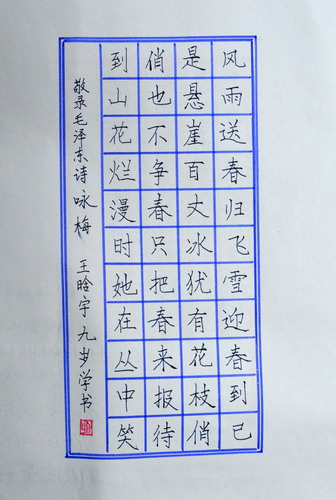 风雨送春归飞雪迎春到已
是悬崖百丈冰犹有花枝俏
俏也不争春只把春来报待
到山花烂漫时她在丛中笑
敬录毛泽东诗咏梅 王晗宇九岁学书